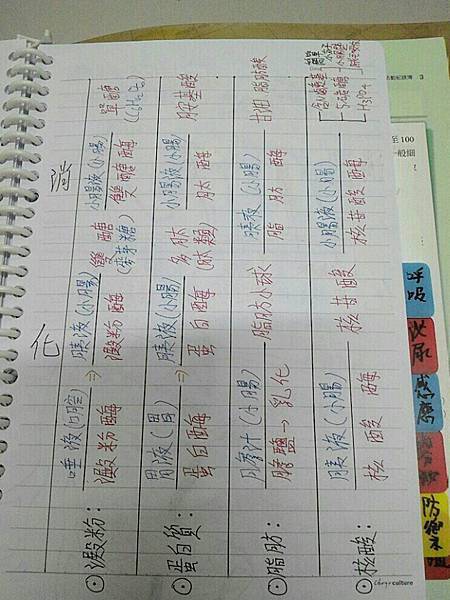 化
唾液(口腔) 胰液(小腸) 小腸液(小腸)
澱粉: 澱粉酶 ⇒ 澱粉酶 雙醣 (麥芽糖) 雙醣酶 單醣 (C6H12O6)
胃液(胃) 胰液(小腸) 小腸液(小腸)
蛋白質: 蛋白酶 ⇒ 蛋白酶 多肽 (肽類) 肽酶 胺基酸
膽汁(小腸) 胰液(小腸)
脂肪: 膽鹽→乳化 脂肪小球 脂肪酶 甘油 脂肪酸
胰液(小腸) 小腸液(小腸)
核酸: 核酸酶 核苷酸 核苷酸酶
含氮鹼基
五碳醣
H3PO4
culture
3
至 100
一般細
呼吸
泌尿
感應
防禦